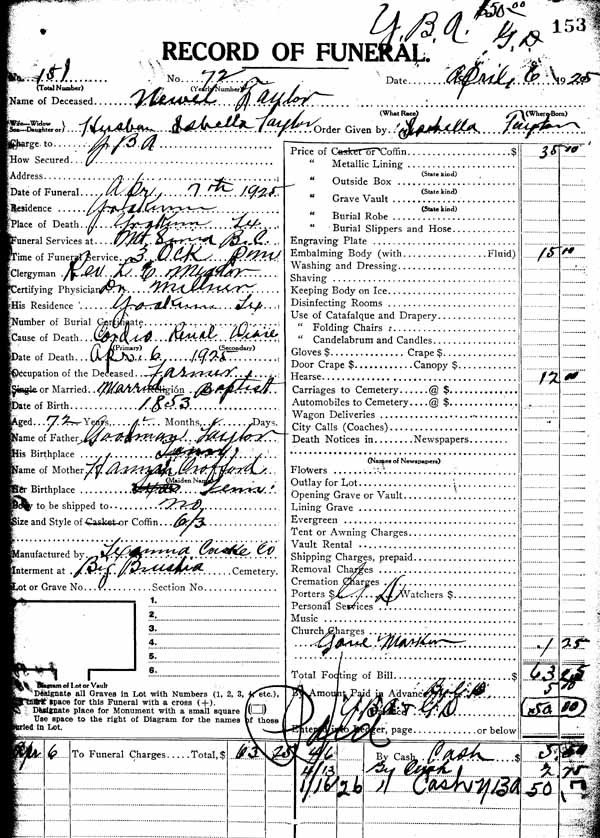 Y.B.A. $50.00
G.D
153
RECORD OF FUNERAL.
No. 151 No. 72 Date April 6 1925
(Total Number) (Yearly Number)
Name of Deceased Newel Taylor
(What Race) (Where Born)
Wife—Widow
Son—Daughter of) Husban Isbella Taylor Order Given by Isabella Taylor
Charge to Y B A
How Secured
Address
Date of Funeral Apr. 7th 1925
Residence Yoakum
Place of Death Yoakum Tex
Funeral Services at Mt. B.C.
Time of Funeral Service 3 OCK Pm
Clergyman Rev. L. E.
Certifying Physician Dr Millner
His Residence Yoakum Tex
Number of Burial Certificate
Cause of Death Cardio Renal
(Primary) (Secondary)
Date of Death Apr. 6 1925
Occupation of the Deceased farmer
Single or Married Married Religion Baptist
Date of Birth 1853
Aged 72 Years, Months, Days.
Name of Father Taylor
His Birthplace Tenn
Name of Mother Hannah Crofford
(Maiden Name)
Her Birthplace Tenn
Body to be shipped to no
Size and Style of Casket or Coffin 6/3
Manufactured by Caske Co
Interment at Big Brushia Cemetery.
Lot or Grave No. Section No.
1.
2.
3.
4.
5.
6.
Diagram of Lot or Vault
Designate all Graves in Lot with Numbers (1, 2, 3, 4, etc.),
mark space for this Funeral with a cross (+).
Designate place for Monument with a small square
Use space to the right of Diagram for the names of those
buried in Lot.
Price of Casket or Coffin $ 35 00
" Metallic Lining
(State kind)
" Outside Box
(State kind)
" Grave Vault
(State kind)
" Burial Robe
" Burial Slippers and Hose
Engraving Plate
Embalming Body (with Fluid) 15 00
Washing and Dressing
Shaving
Keeping Body on Ice
Disinfecting Rooms
Use of Catafalque and Drapery
" Folding Chairs
" Candelabrum and Candles
Gloves $ Crape $
Door Crape $ Canopy $
Hearse 12 00
Carriages to Cemetery @ $
Automobiles to Cemetery @ $
Wagon Deliveries
City Calls (Coaches)
Death Notices in Newspapers
(Names of Newspapers)
Flowers
Outlay for Lot
Opening Grave or Vault
Lining Grave
Evergreen
Tent or Awning Charges
Vault Rental
Shipping Charges, prepaid
Removal Charges
Cremation Charges
Porters $ Watchers $
Personal Services
Music
Church Charges
Gave Marker 1 25
Total Footing of Bill $ 63 25
By Amount Paid in Advance 5 00
YBA & G.D 50 00
Entered into Ledger, page or below
Apr 6 To Funeral Charges Total, $ 63 25 4/6 By Cash Cash 5.00
4/13 By Cash
1/16 26 " Cash YBA 50